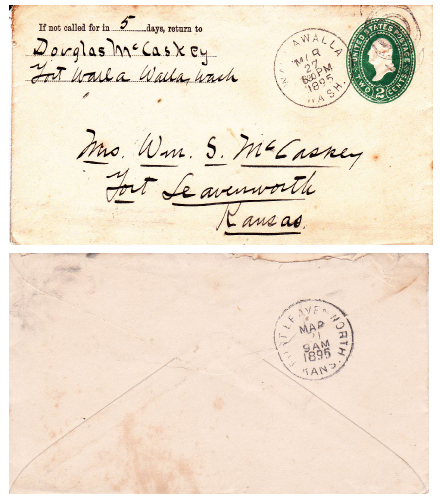 If not called for in 5 days, return to
Douglas McCaskey
Fort Walla Walla, Wash
WALLA WALLA
MAR
27
630PM
1895
WASH.
UNITED STATES POSTAGE
TWO 2 CENTS
Mrs. Wm. S. McCaskey
Fort Leavenworth
Kansas.
FORT LEAVENWORTH
MAR
9AM
1895
KANS.